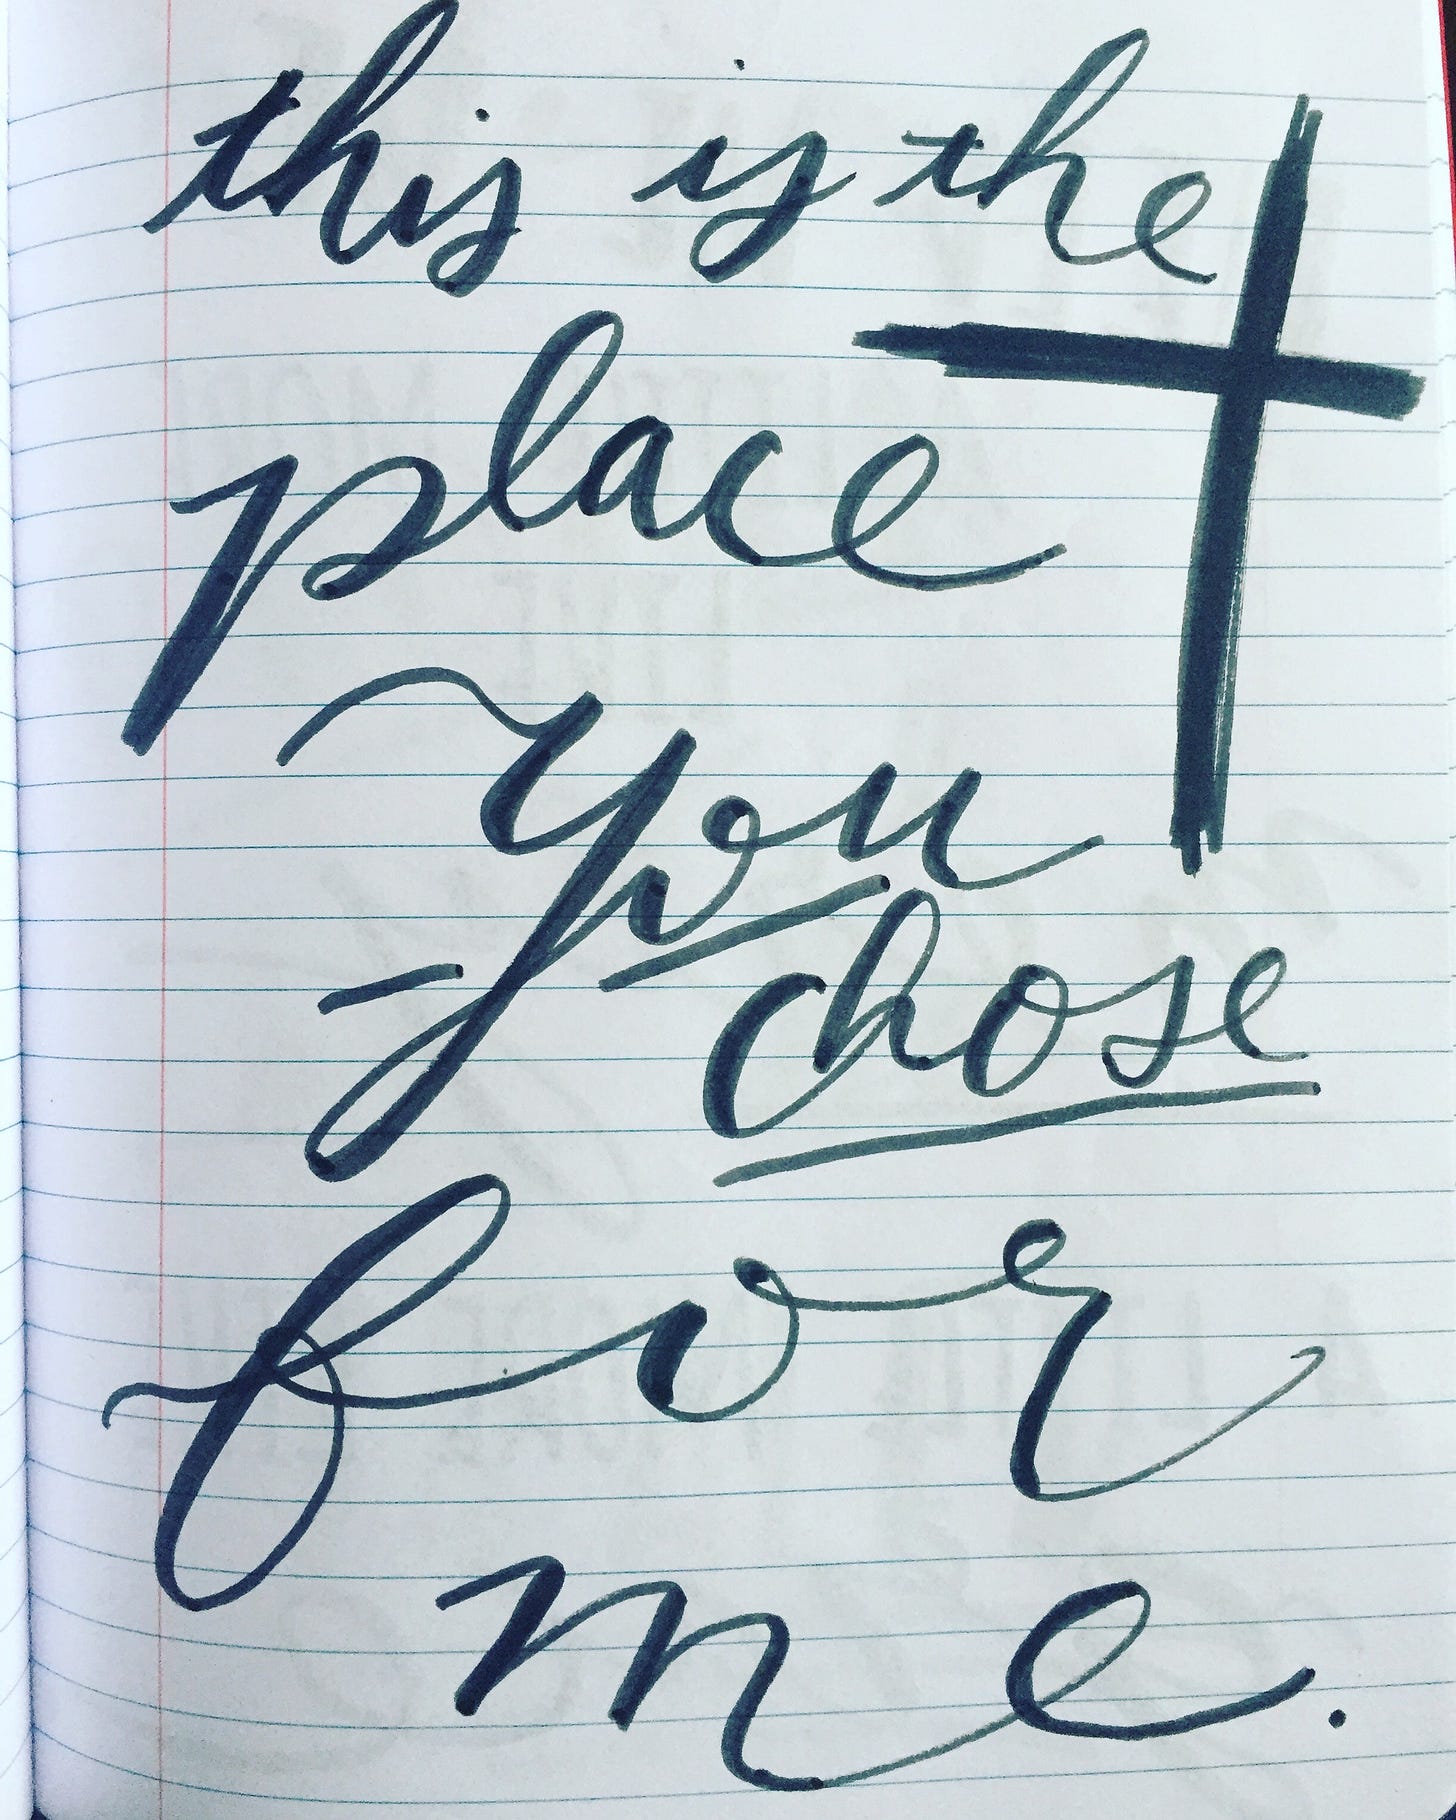 this is the
place
you
chose
for
me.